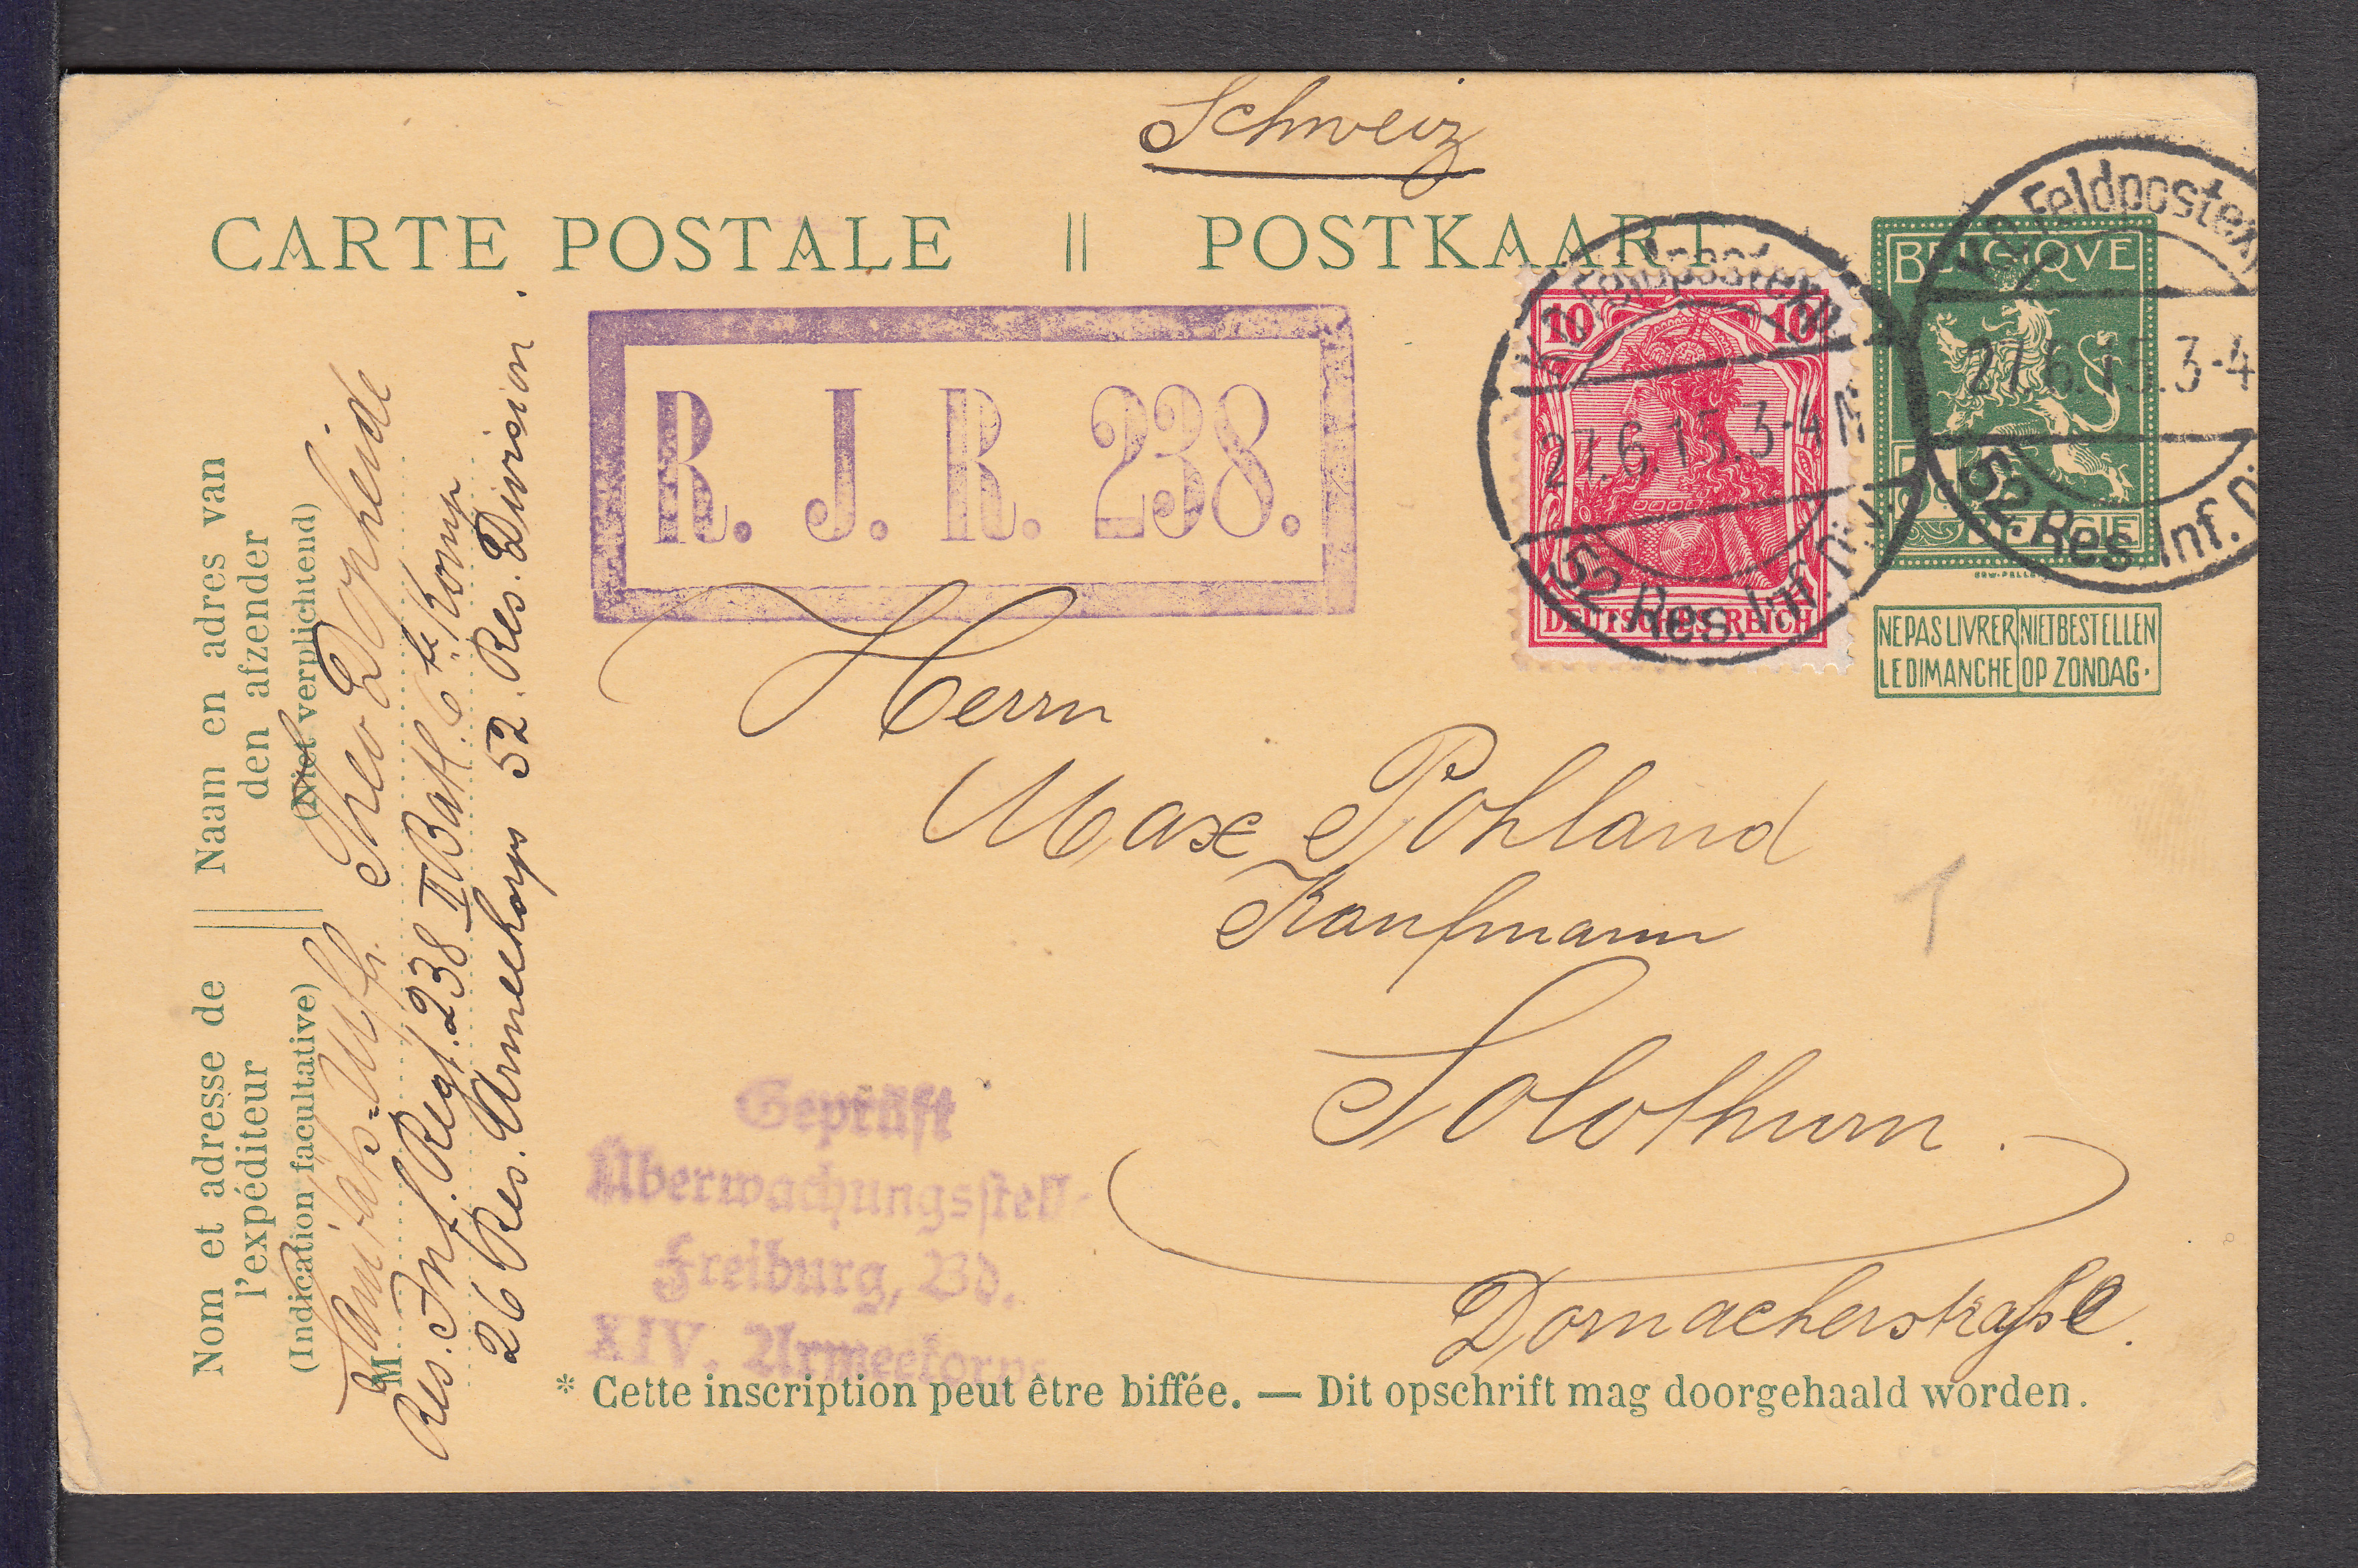 Schweiz
CARTE POSTALE || POSTKAART
R. J. R. 238.
10 10
DEUTSCHES REICH
27.6.15.3-4 N
52. Res. Inf. Div.
BELGIQVE
BELGIE
K.D. Feldpostex
27.6.15.3-4
52. Res. Inf. D
NE PAS LIVRER LE DIMANCHE
NIET BESTELLEN OP ZONDAG.
Herrn
Max Pohland
Kaufmann
Solothurn.
Dornacherstraße.
1
Naam en adres van
den afzender
(Niet verplichtend)
Nom et adresse de
l'expéditeur
(Indication facultative)
M
Sanitäts-Uffz. Theo Dopheide
Res. Inf. Regt. 238 II Batl. 6te Komp
26 Res. Armeekorps 52. Res. Division.
Geprüft
Überwachungsstell
Freiburg, Bd.
XIV. Armeekorps
* Cette inscription peut être biffée. — Dit opschrift mag doorgehaald worden.